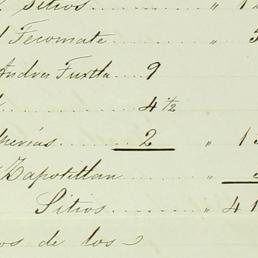 Sitios ........ " 1
Tecomate ........ " 3
Andres Tuxtla ... 9
4 ½
... 2 " 13
Zapotitlan ........ "
Sitios ........ " 41
os de los